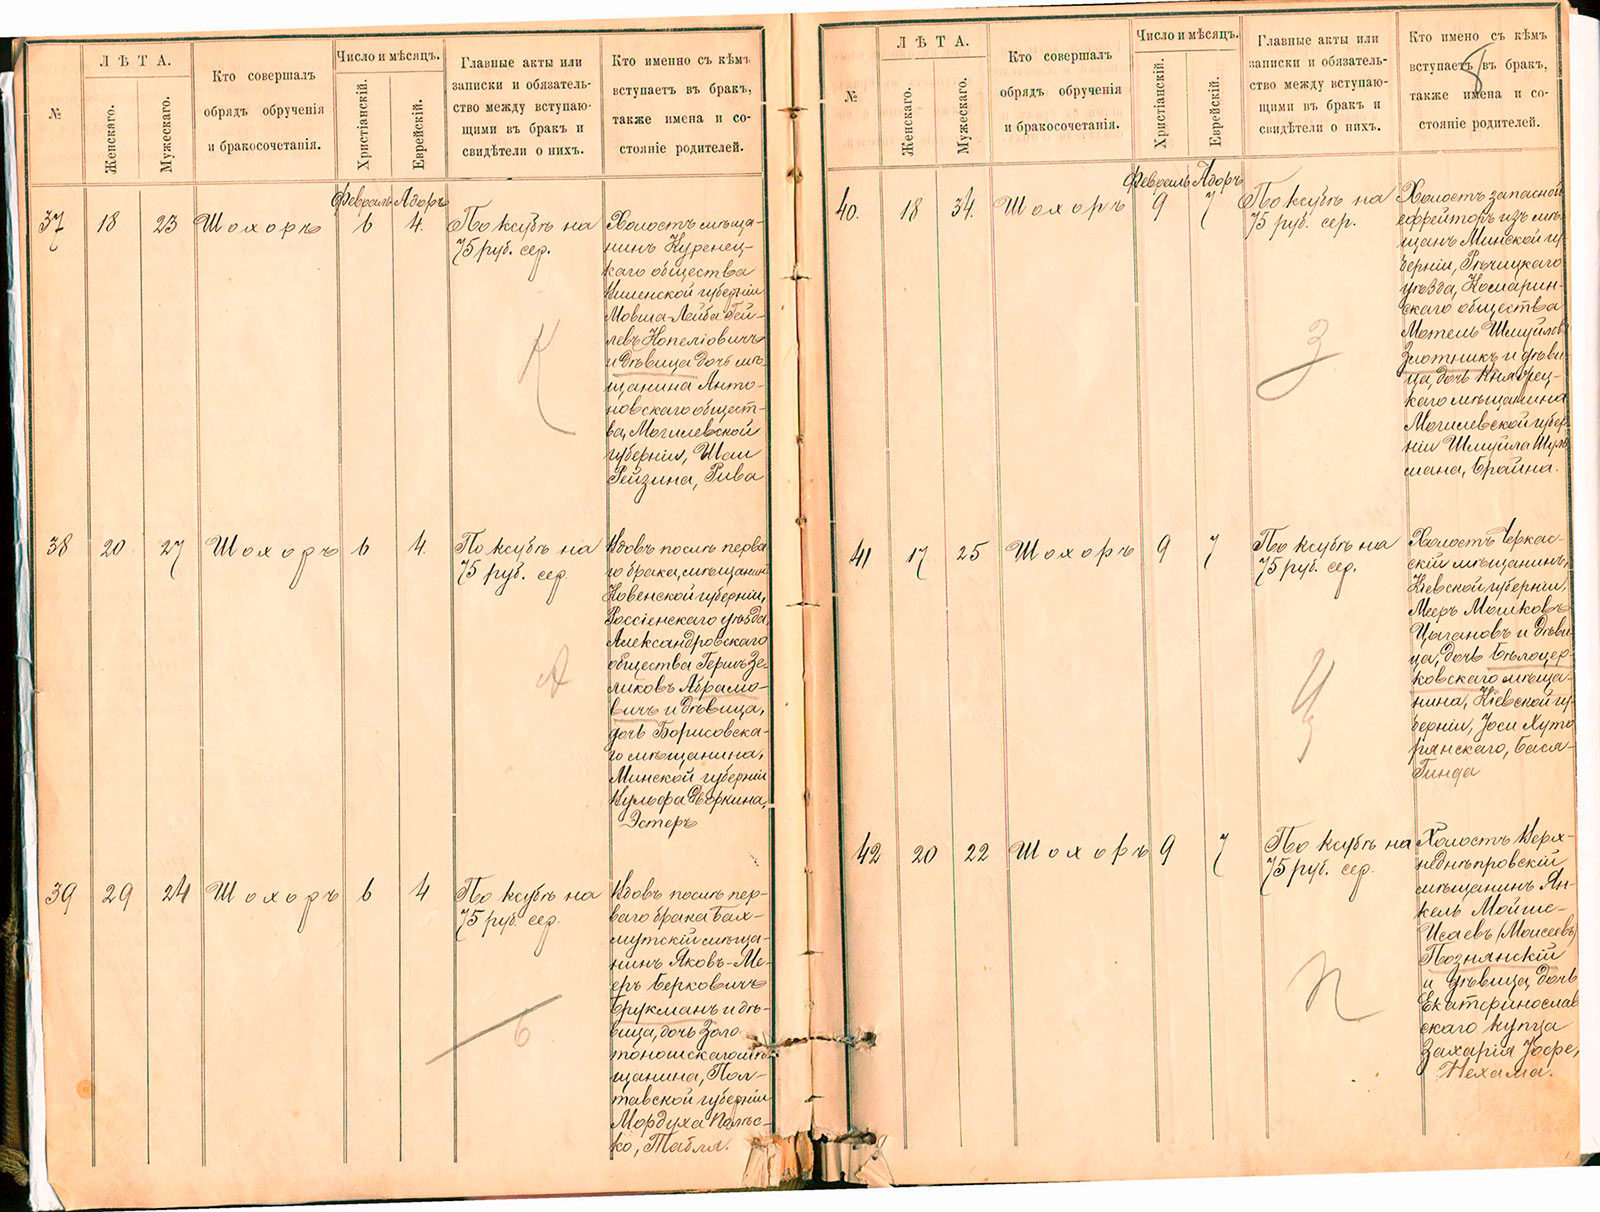 №
ЛѢТА.
Женскаго.
Мужескаго.
Кто совершалъ
обрядъ обрученія
и бракосочетанія.
Число и мѣсяцъ.
Христіанскій.
Еврейскій.
Главные акты или
записки и обязатель-
ство между вступаю-
щими въ бракъ и
свидѣтели о нихъ.
Кто именно съ кѣмъ
вступаетъ въ бракъ,
также имена и со-
стояніе родителей.
Февраль Адоръ
37 18 23 Шохоръ 6 4. По ксубѣ на
75 руб. сер.
Холостъ мѣща-
нинъ Куренец-
каго общества
Виленской губерніи
Мовша-Лейба Гей-
левъ Копеліовичъ
и дѣвица дочь мѣ-
щанина Анто-
новскаго общест-
ва, Могилевской
губерніи, Шаи
Рейзина, Рива
К
38 20 27 Шохоръ 6 4. По ксубѣ на
75 руб. сер.
Вдовъ послѣ перва
го брака, мѣщанин
Ковенской губерніи,
Россіенскаго уѣзда,
Александровскаго
общества Гершъ Зе-
ликовъ Абрамо-
вичъ и дѣвица,
дочь Борисовска-
го мѣщанина,
Минской губерніи
Вульфа Деркина,
Эстеръ
А
39 29 24 Шохоръ 6 4 По ксубѣ на
75 руб. сер.
Вдовъ послѣ пер-
ваго брака Бах-
мутскій мѣща-
нинъ Яковъ-Ме-
еръ Берковичъ
Брукманъ и дѣ-
вица, дочь Золо
тоношскаго мѣ
щанина, Пол-
тавской губерніи
Мордуха
ко, Табля.
Б
№
ЛѢТА.
Женскаго.
Мужескаго.
Кто совершалъ
обрядъ обрученія
и бракосочетанія.
Число и мѣсяцъ.
Христіанскій.
Еврейскій.
Главные акты или
записки и обязатель-
ство между вступаю-
щими въ бракъ и
свидѣтели о нихъ.
Кто имено съ кѣмъ
вступаетъ въ бракъ,
также имена и со-
стояніе родителей.
8
Февраль Адоръ
40. 18 34. Шохоръ 9 7 По ксубѣ на
75 руб. сер.
Холостъ запасной
ефрейторъ изъ мѣ-
щанъ Минской гу-
берніи, Рѣчицкаго
уѣзда, Комарин-
скаго общества
Мотель Шмуйлов
Злотникъ и дѣви-
ца, дочь Княжец-
каго мѣщанина
Могилевской губер
ніи Шмуйла Шуль
мана, Брайна.
З
41 17 25 Шохоръ 9 7 По ксубѣ на
75 руб. сер.
Холостъ Черкас-
скій мѣщанинъ,
Кіевской губерніи,
Мееръ Мошковъ
Цыгановъ и дѣви
ца, дочь Бѣлоцер-
ковскаго мѣща-
нина, Кіевской гу-
берніи, Іоси Хуто
рянскаго, Бася-
Гинда
Ц
42 20 22 Шохоръ 9 7 По ксубѣ на
75 руб. сер.
Холостъ Верх-
неднѣпровскій
мѣщанинъ Ян-
кель Мойше-
Исаевъ (Моисеевъ)
Познянскій
и дѣвица, дочь
Екатеринослав
скаго купца
Захарія Іофе,
Нехама.
П